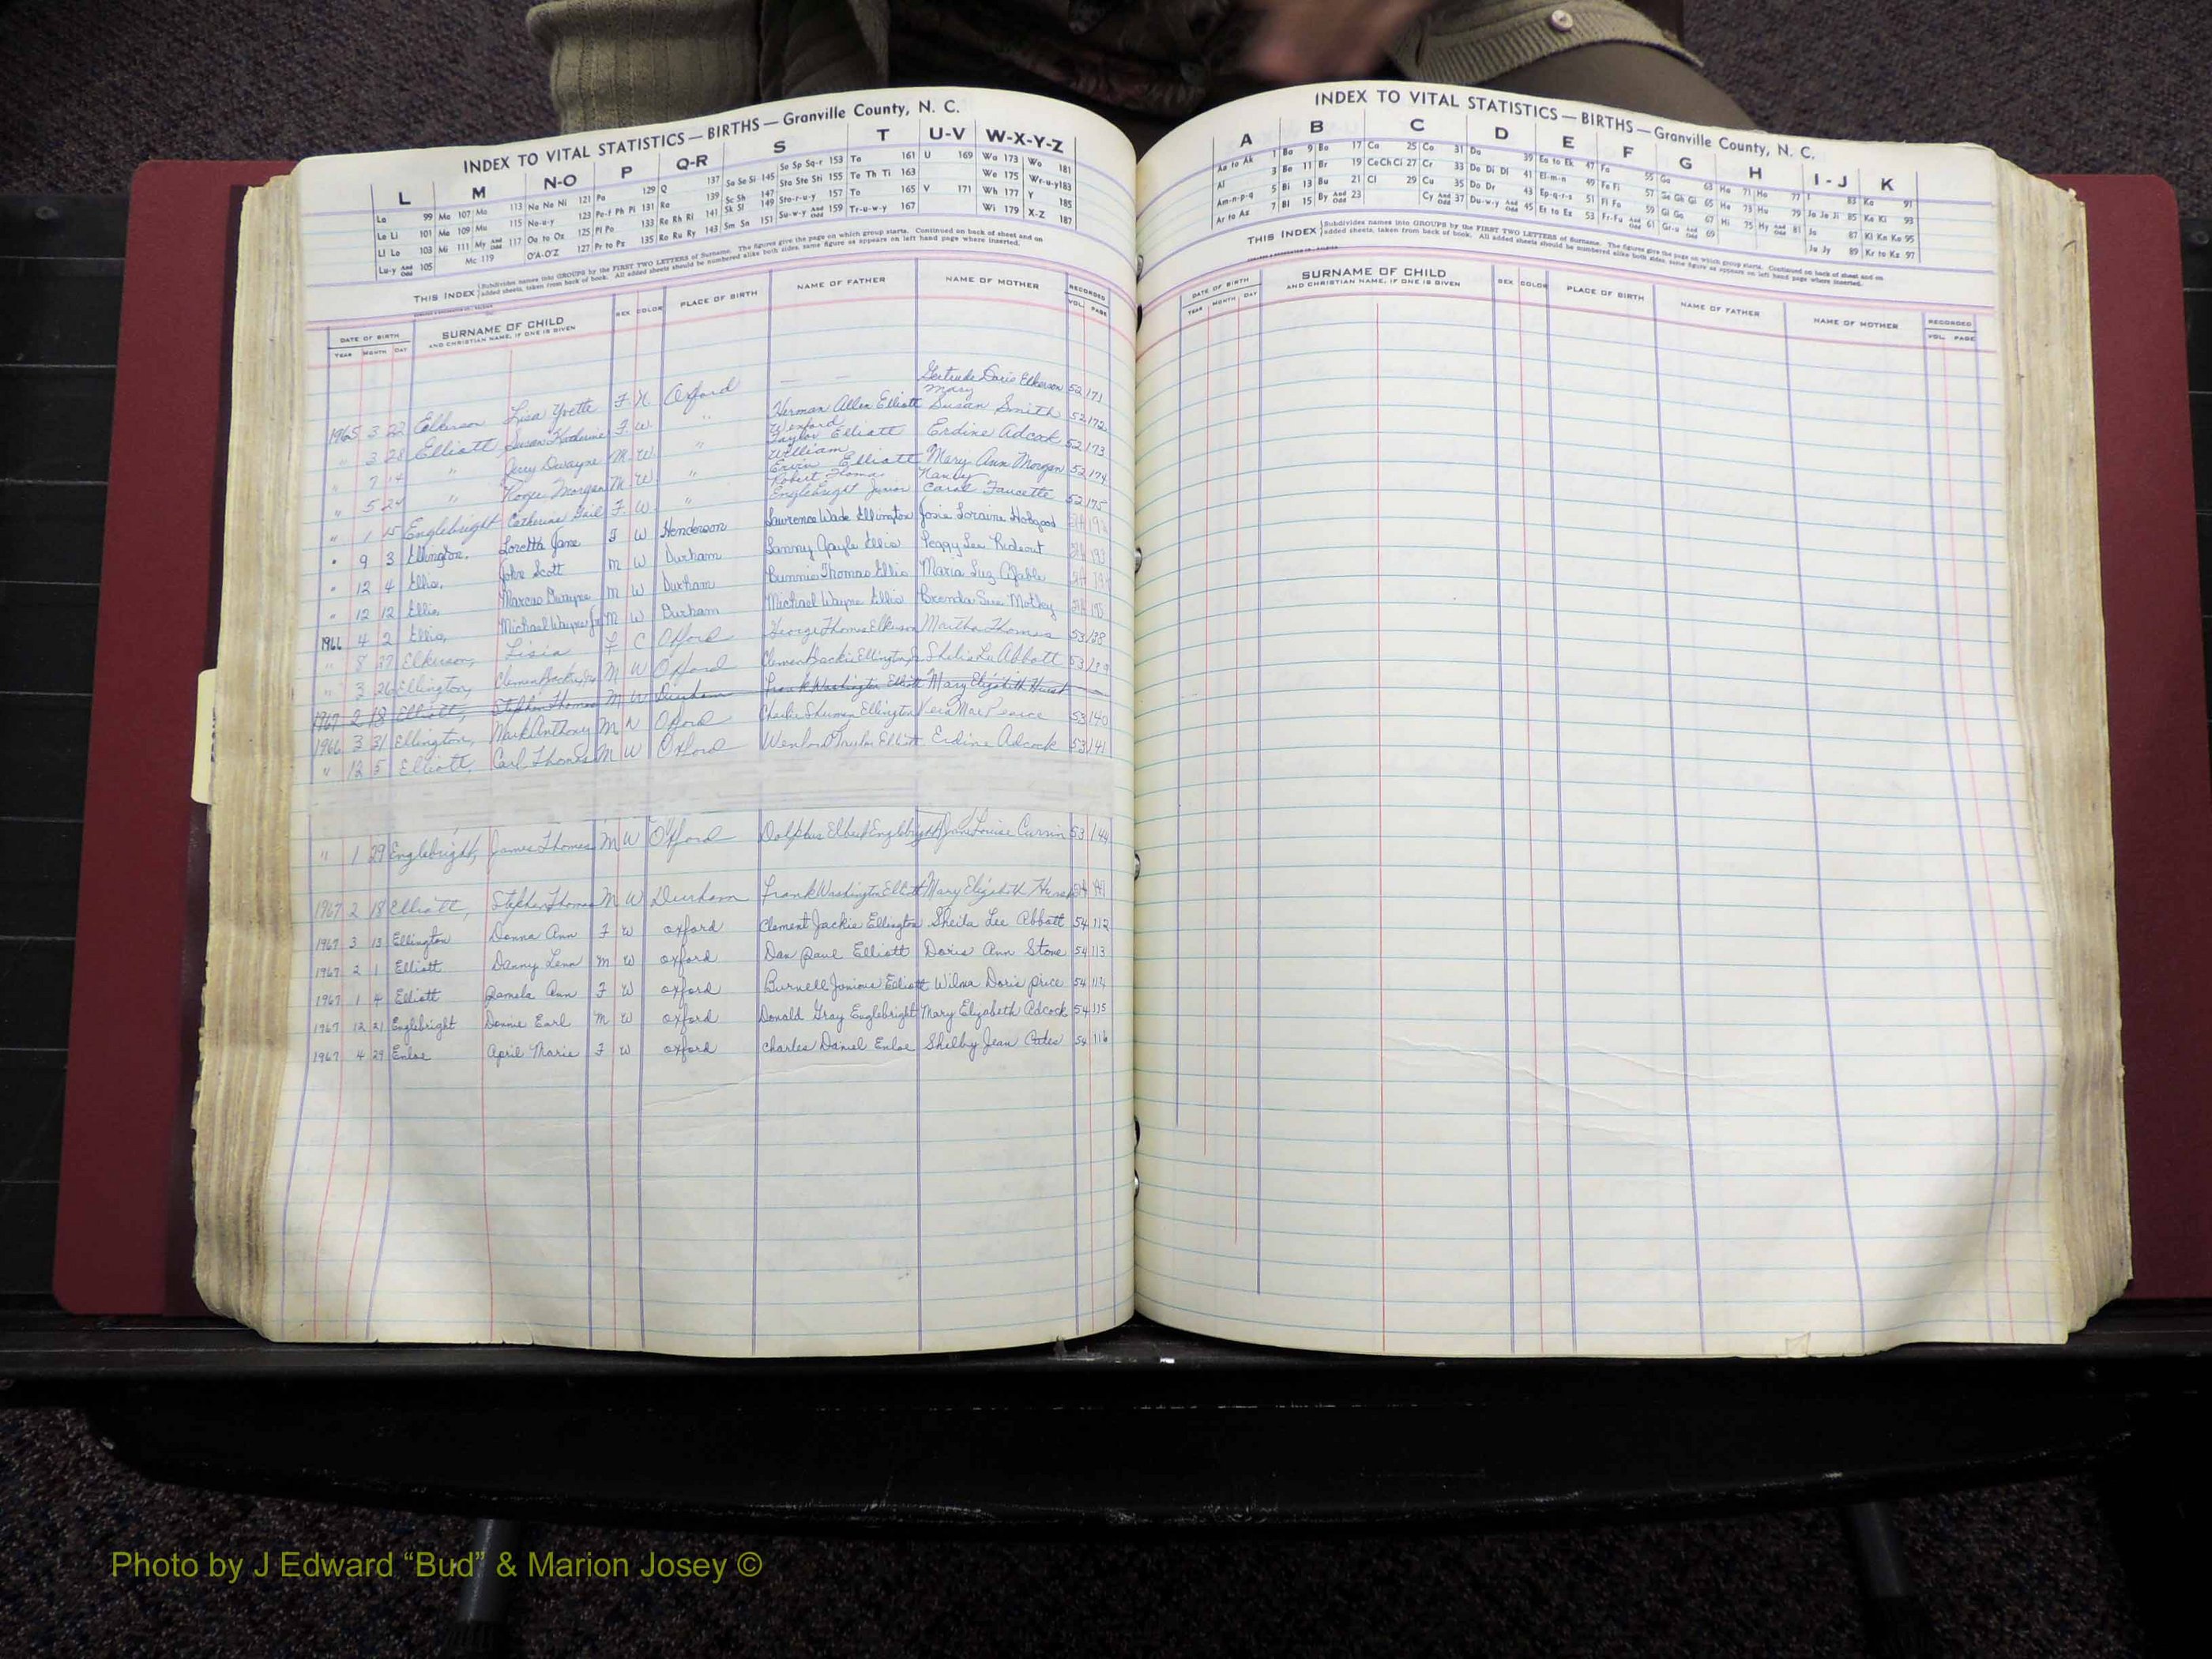 INDEX TO VITAL STATISTICS — BIRTHS — Granville County, N. C.
L M N-O P Q-R S T U-V W-X-Y-Z
La 99 Ma 107 Mo 113 Na Ne Ni 121 Pa 129 Q 137 Sa Se Si 145 So Sp Sq-r 153 Ta 161 U 169 Wa 173 Wo 181
Le Li 101 Me 109 Mu 115 No-u-y 123 Pe-f Ph Pi 131 Ra 139 Sc Sh 147 Sta Ste Sti 155 Te Th Ti 163 We 175 Wr-u-y 183
Ll Lo 103 Mi 111 My And Odd 117 Oa to Oz 125 Pl Po 133 Re Rh Ri 141 Sk Sl 149 Sto-r-u-y 157 To 165 V 171 Wh 177 Y 185
Lu-y And Odd 105 Mc 119 O'A-O'Z 127 Pr to Pz 135 Ro Ru Ry 143 Sm Sn 151 Su-w-y And Odd 159 Tr-u-w-y 167 Wi 179 X-Z 187
THIS INDEX Subdivides names into GROUPS by the FIRST TWO LETTERS of Surname. The figures give the page on which group starts. Continued on back of sheet and on
added sheets, taken from back of book. All added sheets should be numbered alike both sides, same figure as appears on left hand page where inserted.
DATE OF BIRTH SURNAME OF CHILD SEX COLOR PLACE OF BIRTH NAME OF FATHER NAME OF MOTHER RECORDED
YEAR MONTH DAY AND CHRISTIAN NAME, IF ONE IS GIVEN VOL. PAGE
1965 3 22 Elkerson Lisa Yvette F. N. Oxford — — Gertrude Doris Elkerson 52 171
" 3 28 Elliott Susan Katherine F. W. " Herman Allen Elliott Mary Susan Smith 52 172
" 7 14 " Jerry Dwayne M. W. " Wenford Taylor Elliott Erdine Adcock 52 173
" 5 24 " Roger Morgan M W. William Erwin Elliott Mary Ann Morgan 52 174
" 1 15 Englebright Catherine Gail F. W. " Robert Thomas Englebright Junior Nancy Carol Faucette 52 175
" 9 3 Ellington, Loretta Jane F W Henderson Lawrence Wade Ellington Josie Loraine Hobgood
" 12 4 Ellis, John Scott M W Durham Lanny Gayle Ellis Peggy Lee Rideout
" 12 12 Ellis Marcus Dwayne M W Durham Bunnie Thomas Ellis Maria Luz
1966 4 2 Ellis, Michael Wayne Jr M W Durham Michael Wayne Ellis Brenda Sue Motley
" 8 27 Elkerson, Lisia F C Oxford George Thomas Elkerson Martha Thomas 53 138
" 3 26 Ellington, M W Oxford Ellington Jr Shelia Lee Abbott 53 139
1967 2 18 Elliott, Stephen Thomas M W Durham Frank Washington Elliott Mary Elizabeth Hurst —
1966 3 31 Ellington, Mark Anthony M W Oxford Charlie Sherman Ellington Vera Mae Pearce 53 140
" 12 5 Elliott, Carl Thomas M W Oxford Wenford Taylor Elliott Erdine Adcock 53 141
" 1 29 Englebright, James Thomas M W Oxford Dolphus Elbert Englebright Louise Currin 53 144
1967 2 18 Elliott, Stephen Thomas M W Durham Frank Washington Elliott Mary Elizabeth Hurst
1967 3 13 Ellington Donna Ann F W Oxford Clement Jackie Ellington Sheila Lee Abbott 54 112
1967 2 1 Elliott Danny Lenn M W Oxford Dan Paul Elliott Doris Ann Stone 54 113
1967 1 4 Elliott Pamela Ann F W Oxford Burnell Junious Elliott Wilma Doris Price 54 114
1967 12 21 Englebright Donnie Earl M W Oxford Donald Gray Englebright Mary Elizabeth Adcock 54 115
1967 4 29 Enloe April Marie F W Oxford Charles Daniel Enloe Shelby Jean Cates 54 116
INDEX TO VITAL STATISTICS — BIRTHS — Granville County, N. C.
A B C D E F G H I-J K
Aa to Ak 1 Ba 9 Bo 17 Ca 25 Co 31 Da 39 Ea to Ek 47 Fa 55 Ga 63 Ha 71 Ho 77 I 83 Ka 91
Al 3 Be 11 Br 19 Ce Ch Ci 27 Cr 33 De Di Dl 41 El-m-n 49 Fe Fi 57 Ge Gh Gi 65 He 73 Hu 79 Ja Je Ji 85 Ke Ki 93
Am-n-p-q 5 Bi 13 Bu 21 Cl 29 Cu 35 Do Dr 43 Ep-q-r-s 51 Fl Fo 59 Gl Go 67 Hi 75 Hy And Odd 81 Jo 87 Kl Kn Ko 95
Ar to Az 7 Bl 15 By And Odd 23 Cy And Odd 37 Du-w-y And Odd 45 Et to Ez 53 Fr-Fu And Odd 61 Gr-u And Odd 69 Ju Jy 89 Kr to Kz 97
THIS INDEX Subdivides names into GROUPS by the FIRST TWO LETTERS of Surname. The figures give the page on which group starts. Continued on back of sheet and on
added sheets, taken from back of book. All added sheets should be numbered alike both sides, same figure as appears on left hand page where inserted.
DATE OF BIRTH SURNAME OF CHILD SEX COLOR PLACE OF BIRTH NAME OF FATHER NAME OF MOTHER RECORDED
YEAR MONTH DAY AND CHRISTIAN NAME, IF ONE IS GIVEN VOL. PAGE
Photo by J Edward “Bud” & Marion Josey ©